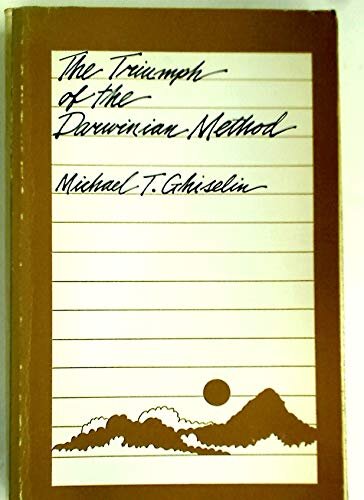 The Triumph
of the
Darwinian Method
Michael T. Ghiselin